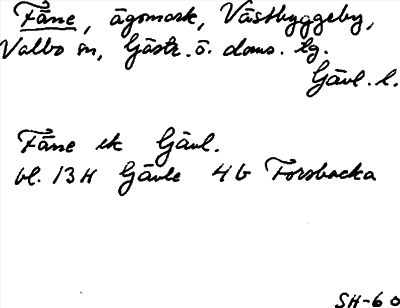 Fäne, ägomark, Västbyggeby,
Valbo sn, Gästr. ö. doms. tg.
Gävl. l.
Fäne ek Gävl.
bl. 13H Gävle 4b Forsbacka
SH-60